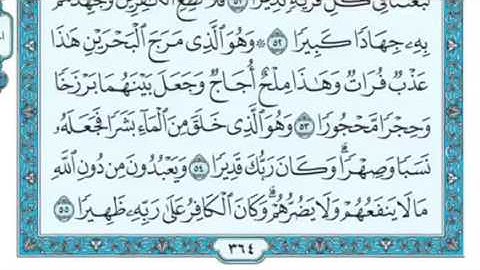 لَبَعَثْنَا فِي كُلِّ قَرْيَةٍ نَّذِيرًا ٥١ فَلَا تُطِعِ ٱلْكَٰفِرِينَ وَجَٰهِدْهُم
بِهِۦ جِهَادًا كَبِيرًا ٥٢ ۞ وَهُوَ ٱلَّذِي مَرَجَ ٱلْبَحْرَيْنِ هَٰذَا
عَذْبٌ فُرَاتٌ وَهَٰذَا مِلْحٌ أُجَاجٌ وَجَعَلَ بَيْنَهُمَا بَرْزَخًا
وَحِجْرًا مَّحْجُورًا ٥٣ وَهُوَ ٱلَّذِي خَلَقَ مِنَ ٱلْمَآءِ بَشَرًا فَجَعَلَهُۥ
نَسَبًا وَصِهْرًا ۗ وَكَانَ رَبُّكَ قَدِيرًا ٥٤ وَيَعْبُدُونَ مِن دُونِ ٱللَّهِ
مَا لَا يَنفَعُهُمْ وَلَا يَضُرُّهُمْ ۗ وَكَانَ ٱلْكَافِرُ عَلَىٰ رَبِّهِۦ ظَهِيرًا ٥٥
٣٦٤